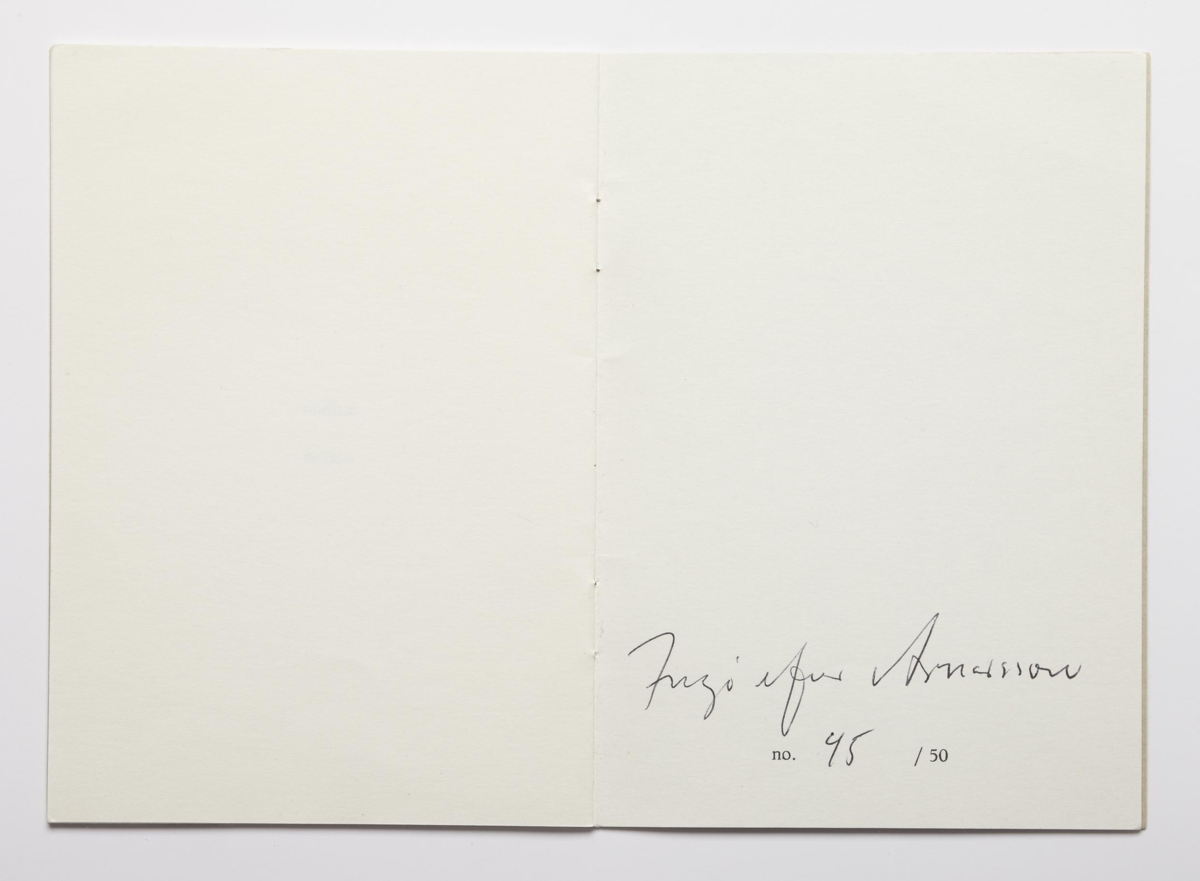 Ingólfur Arnarsson
no. 45 / 50